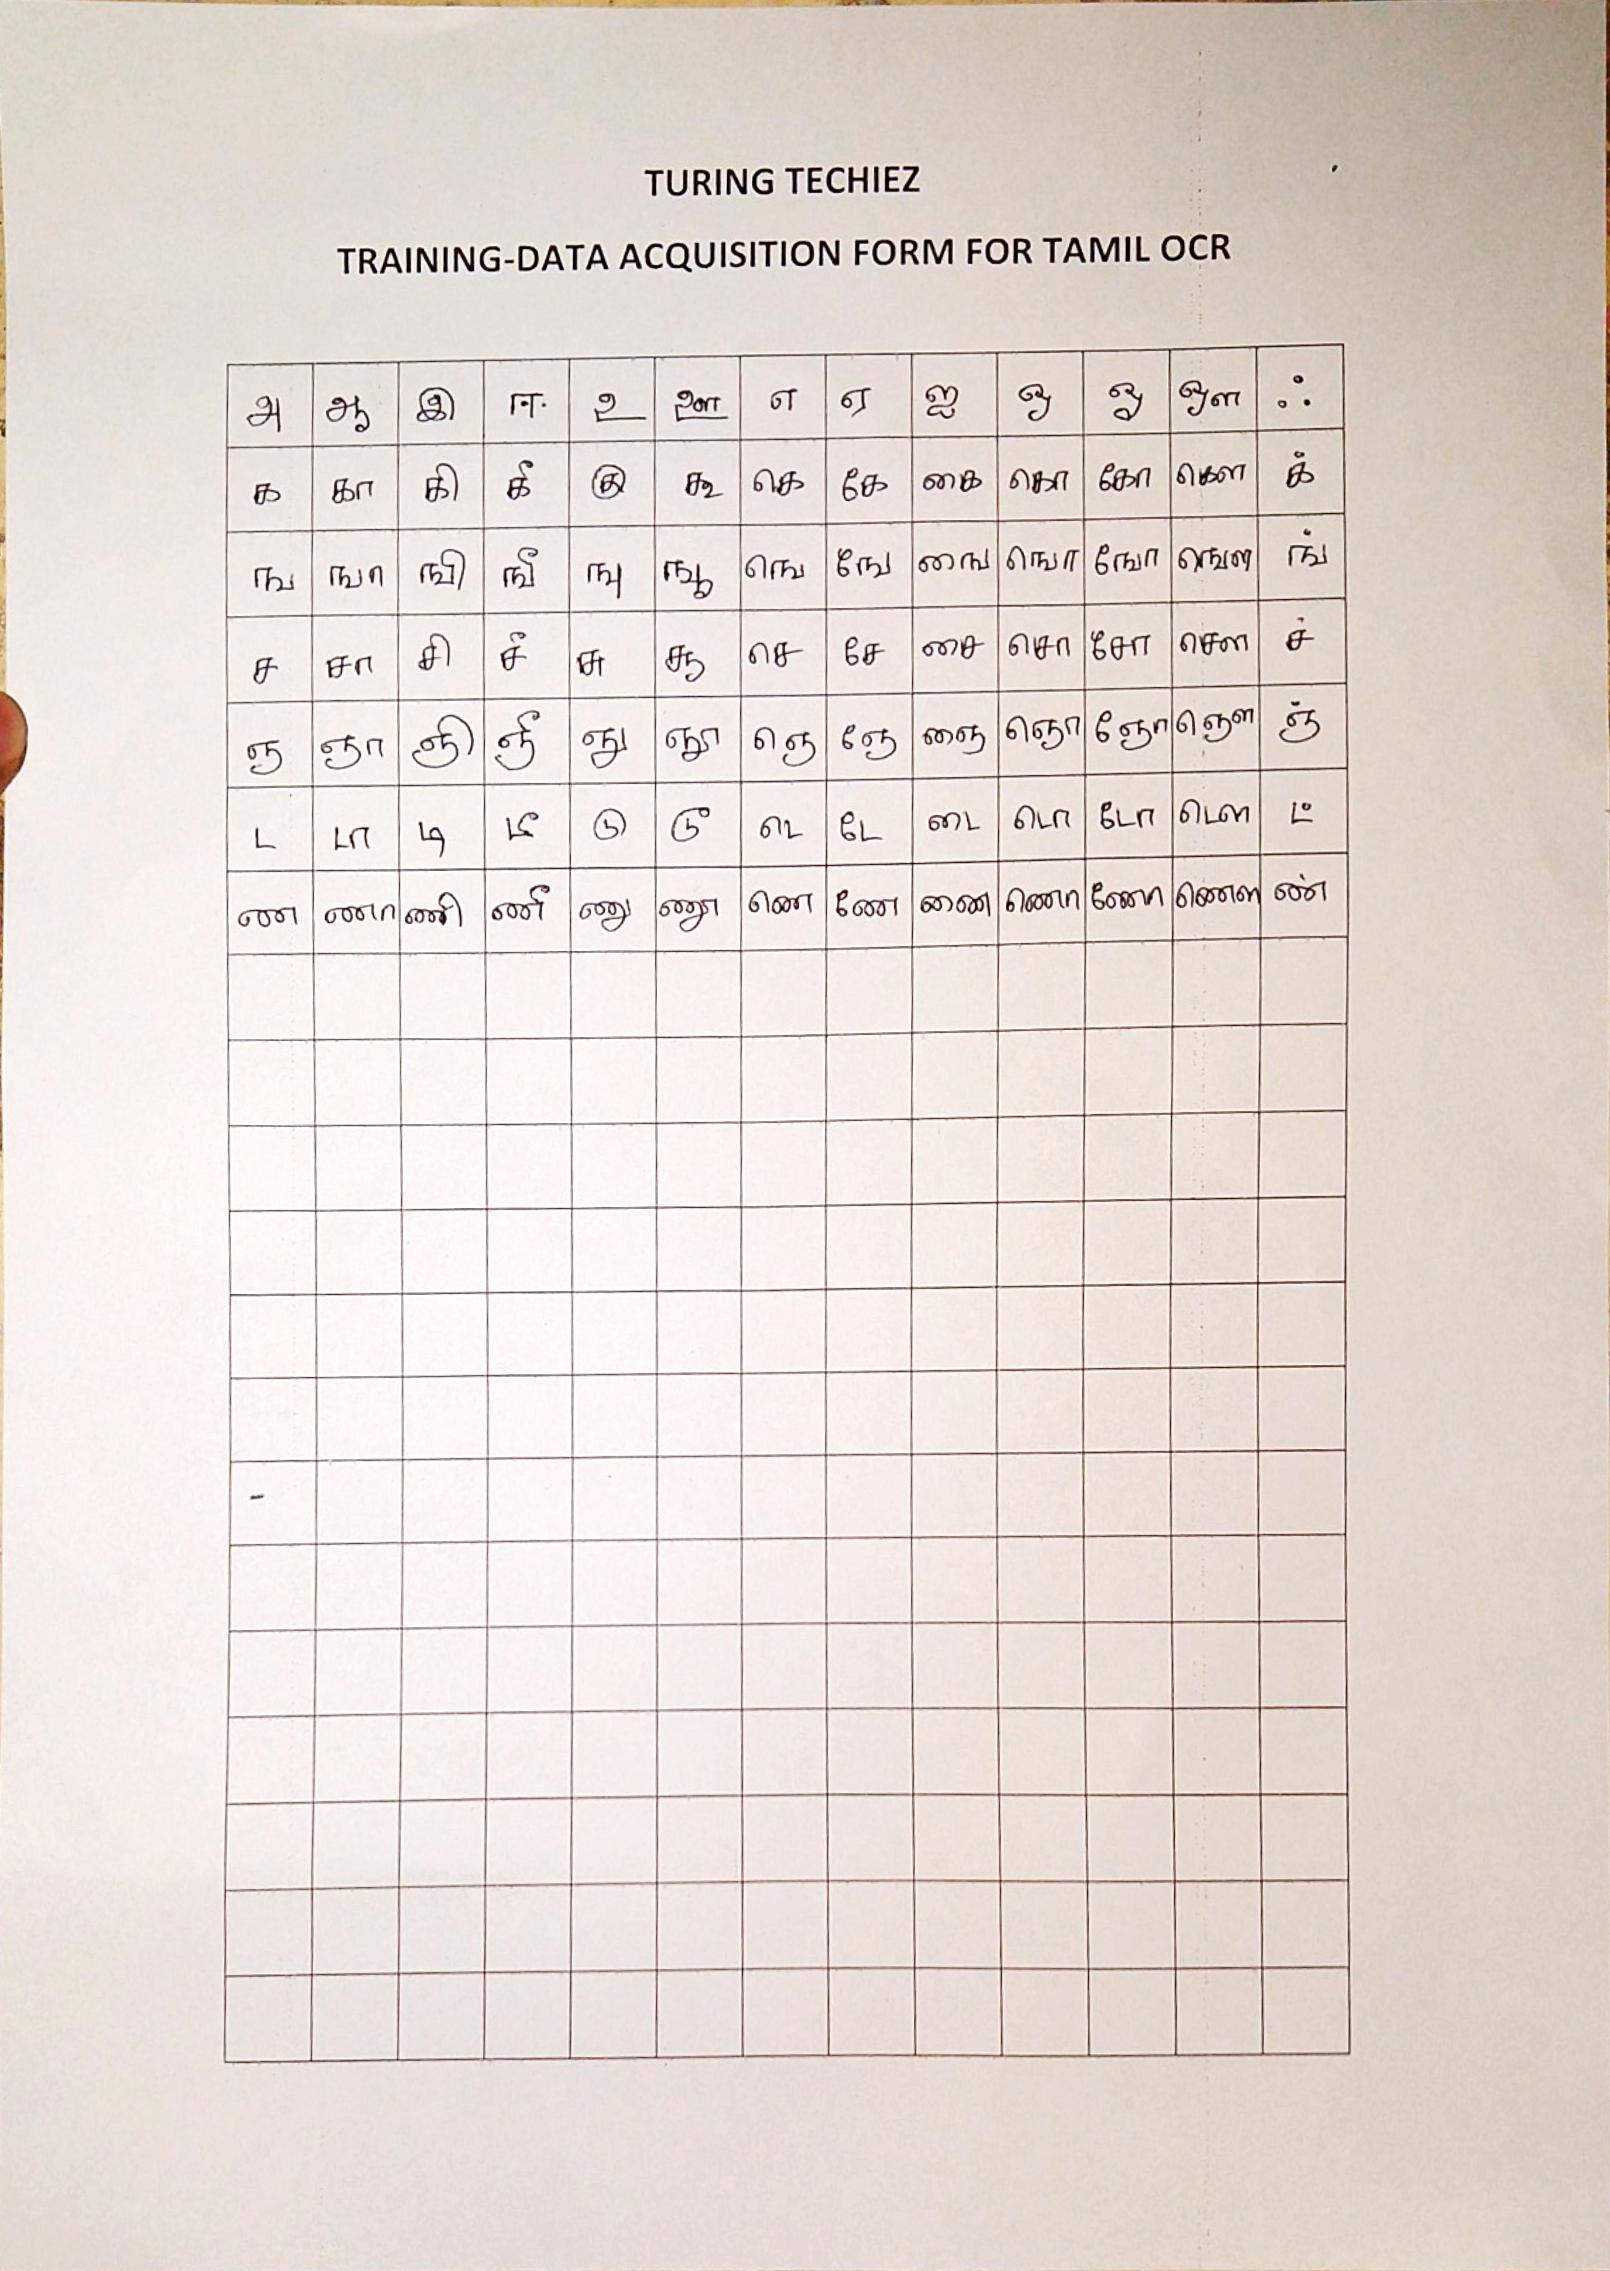 TURING TECHIEZ
TRAINING-DATA ACQUISITION FORM FOR TAMIL OCR
அ ஆ இ ஈ உ ஊ எ ஏ ஐ ஒ ஓ ஔ ஃ
க கா கி கீ கு கூ கெ கே கை கொ கோ கௌ க்
ங ஙா ஙி ஙீ ஙு ஙூ ஙெ ஙே ஙை ஙொ ஙோ ஙௌ ங்
ச சா சி சீ சு சூ செ சே சை சொ சோ சௌ ச்
ஞ ஞா ஞி ஞீ ஞு ஞூ ஞெ ஞே ஞை ஞொ ஞோ ஞௌ ஞ்
ட டா டி டீ டு டூ டெ டே டை டொ டோ டௌ ட்
ண ணா ணி ணீ ணு ணூ ணெ ணே ணை ணொ ணோ ணௌ ண்
-